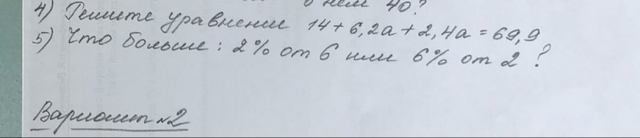 в нём 40?
4) Решите уравнении 14 + 6,2а + 2,4а = 69,9
5) Что больше: 2% от 6 или 6% от 2 ?
Вариант №2